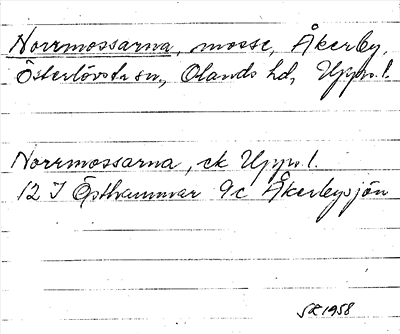 Norrmossarna, mosse, Åkerby,
Österlövsta sn, Olands hd, Upps. l.
Norrmossarna, ek Upps. l.
12 I Östhammar 9c Åkerbysjön
1958